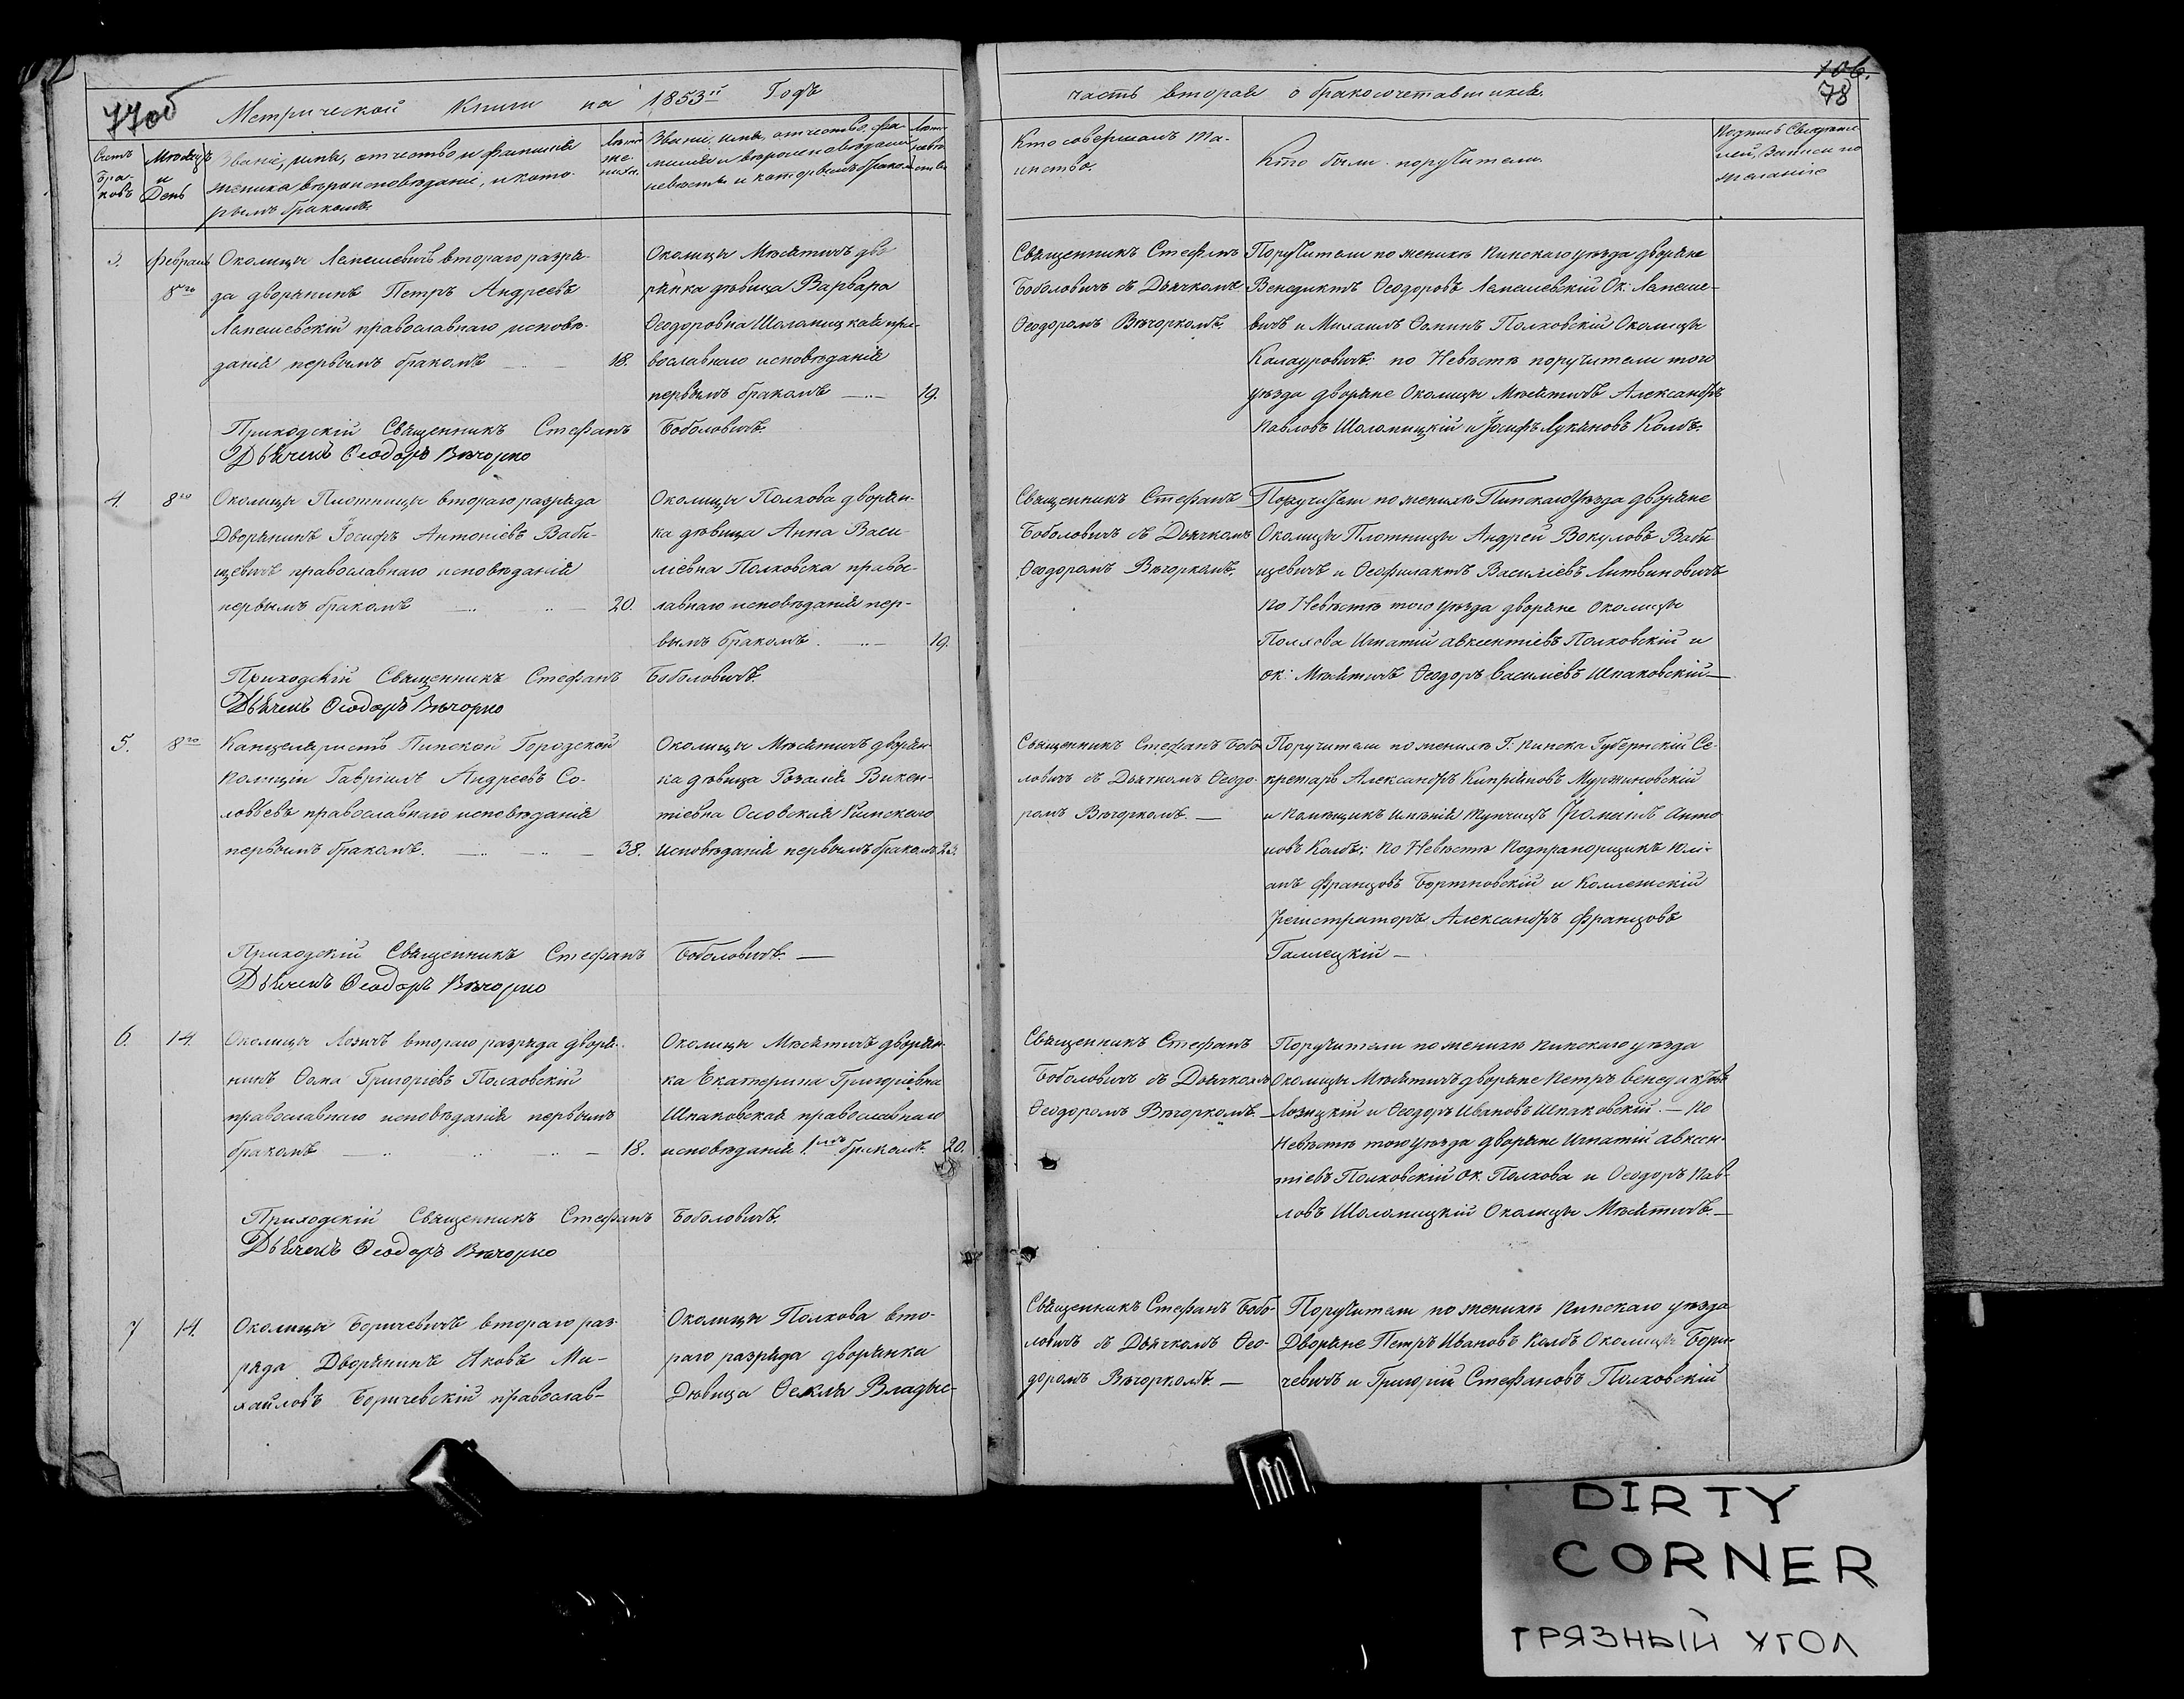 77об
Метрической Книги на 1853й Годъ
часть вторая о бракосочетавшихся.
106.
78
Счетъ браковъ
Мѣсяцъ и День
Званіе, имя, отчество и фамилія
жениха вѣроисповѣданіе, и кото-
рымъ бракомъ.
Лѣта жениха.
Званіе, имя, отчество, фа-
милія и вѣроисповѣданіе
невѣсты и которымъ бракомъ
Кто совершалъ Та-
инство.
Кто были поручители
Подпись Свидѣте-
лей, Записи по
желанію
3.
Февраль
8го
Околицы Лапешевичъ втораго разря-
да дворянинъ Петръ Андреевъ
Лапешевскій православнаго исповѣ-
данія первымъ бракомъ
18.
Околицы Мѣсятичъ дво
рянка дѣвица Варвара
Ѳеодоровна Шоломицкая пра-
вославнаго исповѣданія
первымъ бракомъ
19.
Священникъ Стефанъ
Боболовичъ съ Дьячкомъ
Ѳеодоромъ Вѣчоркомъ.
Поручители по женихѣ Пинскаго уѣзда дворяне
Венедиктъ Ѳеодоровъ Лапешевскій Ок: Лапеше-
вичъ и Михаилъ Ѳоминъ Полховскій Околицы
Калауровичъ: по Невѣстѣ поручители того
уѣзда дворяне Околицы Мѣсятичъ Александръ
Павловъ Шоломицкій и Іосифъ Лукяновъ Колбъ.
Приходскій Священникъ Стефанъ Боболовичъ.
Дьячекъ Ѳеодоръ Вѣчорко
4.
8го
Околицы Плотницы втораго разряда
Дворянинъ Іосифъ Антоніевъ Баби-
щевичъ православнаго исповѣданія
первымъ бракомъ
20.
Околицы Полхова дворян-
ка дѣвица Анна Васи-
ліевна Полховска правос-
лавнаго исповѣданія пер-
вымъ бракомъ.
19.
Священникъ Стефанъ
Боболовичъ съ Дьячкомъ
Ѳеодоромъ Вѣчоркомъ.
Поручители по женихѣ Пинскаго Уѣзда дворяне
Околицы Плотницы Андрей Вокуловъ Баби
щевичъ и Ѳеофилактъ Василіевъ Литвиновичъ
по Невѣстѣ того уѣзда дворяне Околицы
Полхова Игнатій Авксентіевъ Полховскій и
ок: Мѣсятичъ Ѳеодоръ Василіевъ Шпаковскій—
Приходскій Священникъ Стефанъ Боболовичъ.
Дьячекъ Ѳеодоръ Вѣчорко
5.
8го
Канцеляристъ Пинской Городской
Полиціи Гавріилъ Андреевъ Со-
ловьевъ православнаго исповѣданія
первымъ бракомъ.
38.
Околицы Мѣсятичъ дворян-
ка дѣвица Розалія Викен-
тіевна Осовскія Римскаго
исповѣданія первымъ бракомъ
23.
Священникъ Стефанъ Бобо
ловичъ съ Дьячкомъ Ѳеодо-
ромъ Вѣчоркомъ. —
Поручители по женихѣ Г. Пинска Губернскій Се-
кретарь Александръ Кипріяновъ Муржиновскій
и Помѣщикъ имѣній Тупчицъ Романъ Анто
новъ Колбъ; по Невѣстѣ Подпрапорщикъ Юлі-
анъ Францовъ Бортновскій и Коллежскій
Регистраторъ Александръ Францовъ
Галлецкій —
Приходскій Священникъ Стефанъ Боболовичъ. —
Дьячекъ Ѳеодоръ Вѣчорко
6.
14.
Околицы Лозичъ втораго разряда дворя-
нинъ Ѳома Григоріевъ Полховскій
православнаго исповѣданія первымъ
бракомъ
18.
Околицы Мѣсятичъ дворян-
ка Екатерина Григоріевна
Шпаковская православнаго
исповѣданія 1.мъ бракомъ.
20.
Священникъ Стефанъ
Боболовичъ съ Дьячкомъ
Ѳеодоромъ Вѣчоркомъ. —
Поручители по женихѣ Пинскаго уѣзда
Околицы Мѣсятичъ дворяне Петръ Венедиктовъ
Лозицкій и Ѳеодоръ Ивановъ Шпаковскій. — По
Невѣстѣ того уѣзда дворяне Игнатій Авксен-
тіевъ Полховскій Ок. Полхова и Ѳеодоръ Пав-
ловъ Шоломицкій Околицы Мѣсятичъ. —
Приходскій Священникъ Стефанъ Боболовичъ.
Дьячекъ Ѳеодоръ Вѣчорко
7
14.
Околицы Боричевичъ втораго раз-
ряда Дворянинъ Яковъ Ми-
хайловъ Боричевскій православ-
Околицы Полхова вто-
раго разряда дворянка
Дѣвица Ѳекла Владыс-
Священникъ Стефанъ Бобо
ловичъ съ Дьячкомъ Ѳео-
доромъ Вѣчоркомъ. —
Поручители по женихѣ Пинскаго уѣзда
Дворяне Петръ Ивановъ Колбъ Околицы Бори-
чевичъ и Григорій Стефановъ Полховскій
DIRTY
CORNER
ГРЯЗНЫЙ УГОЛ